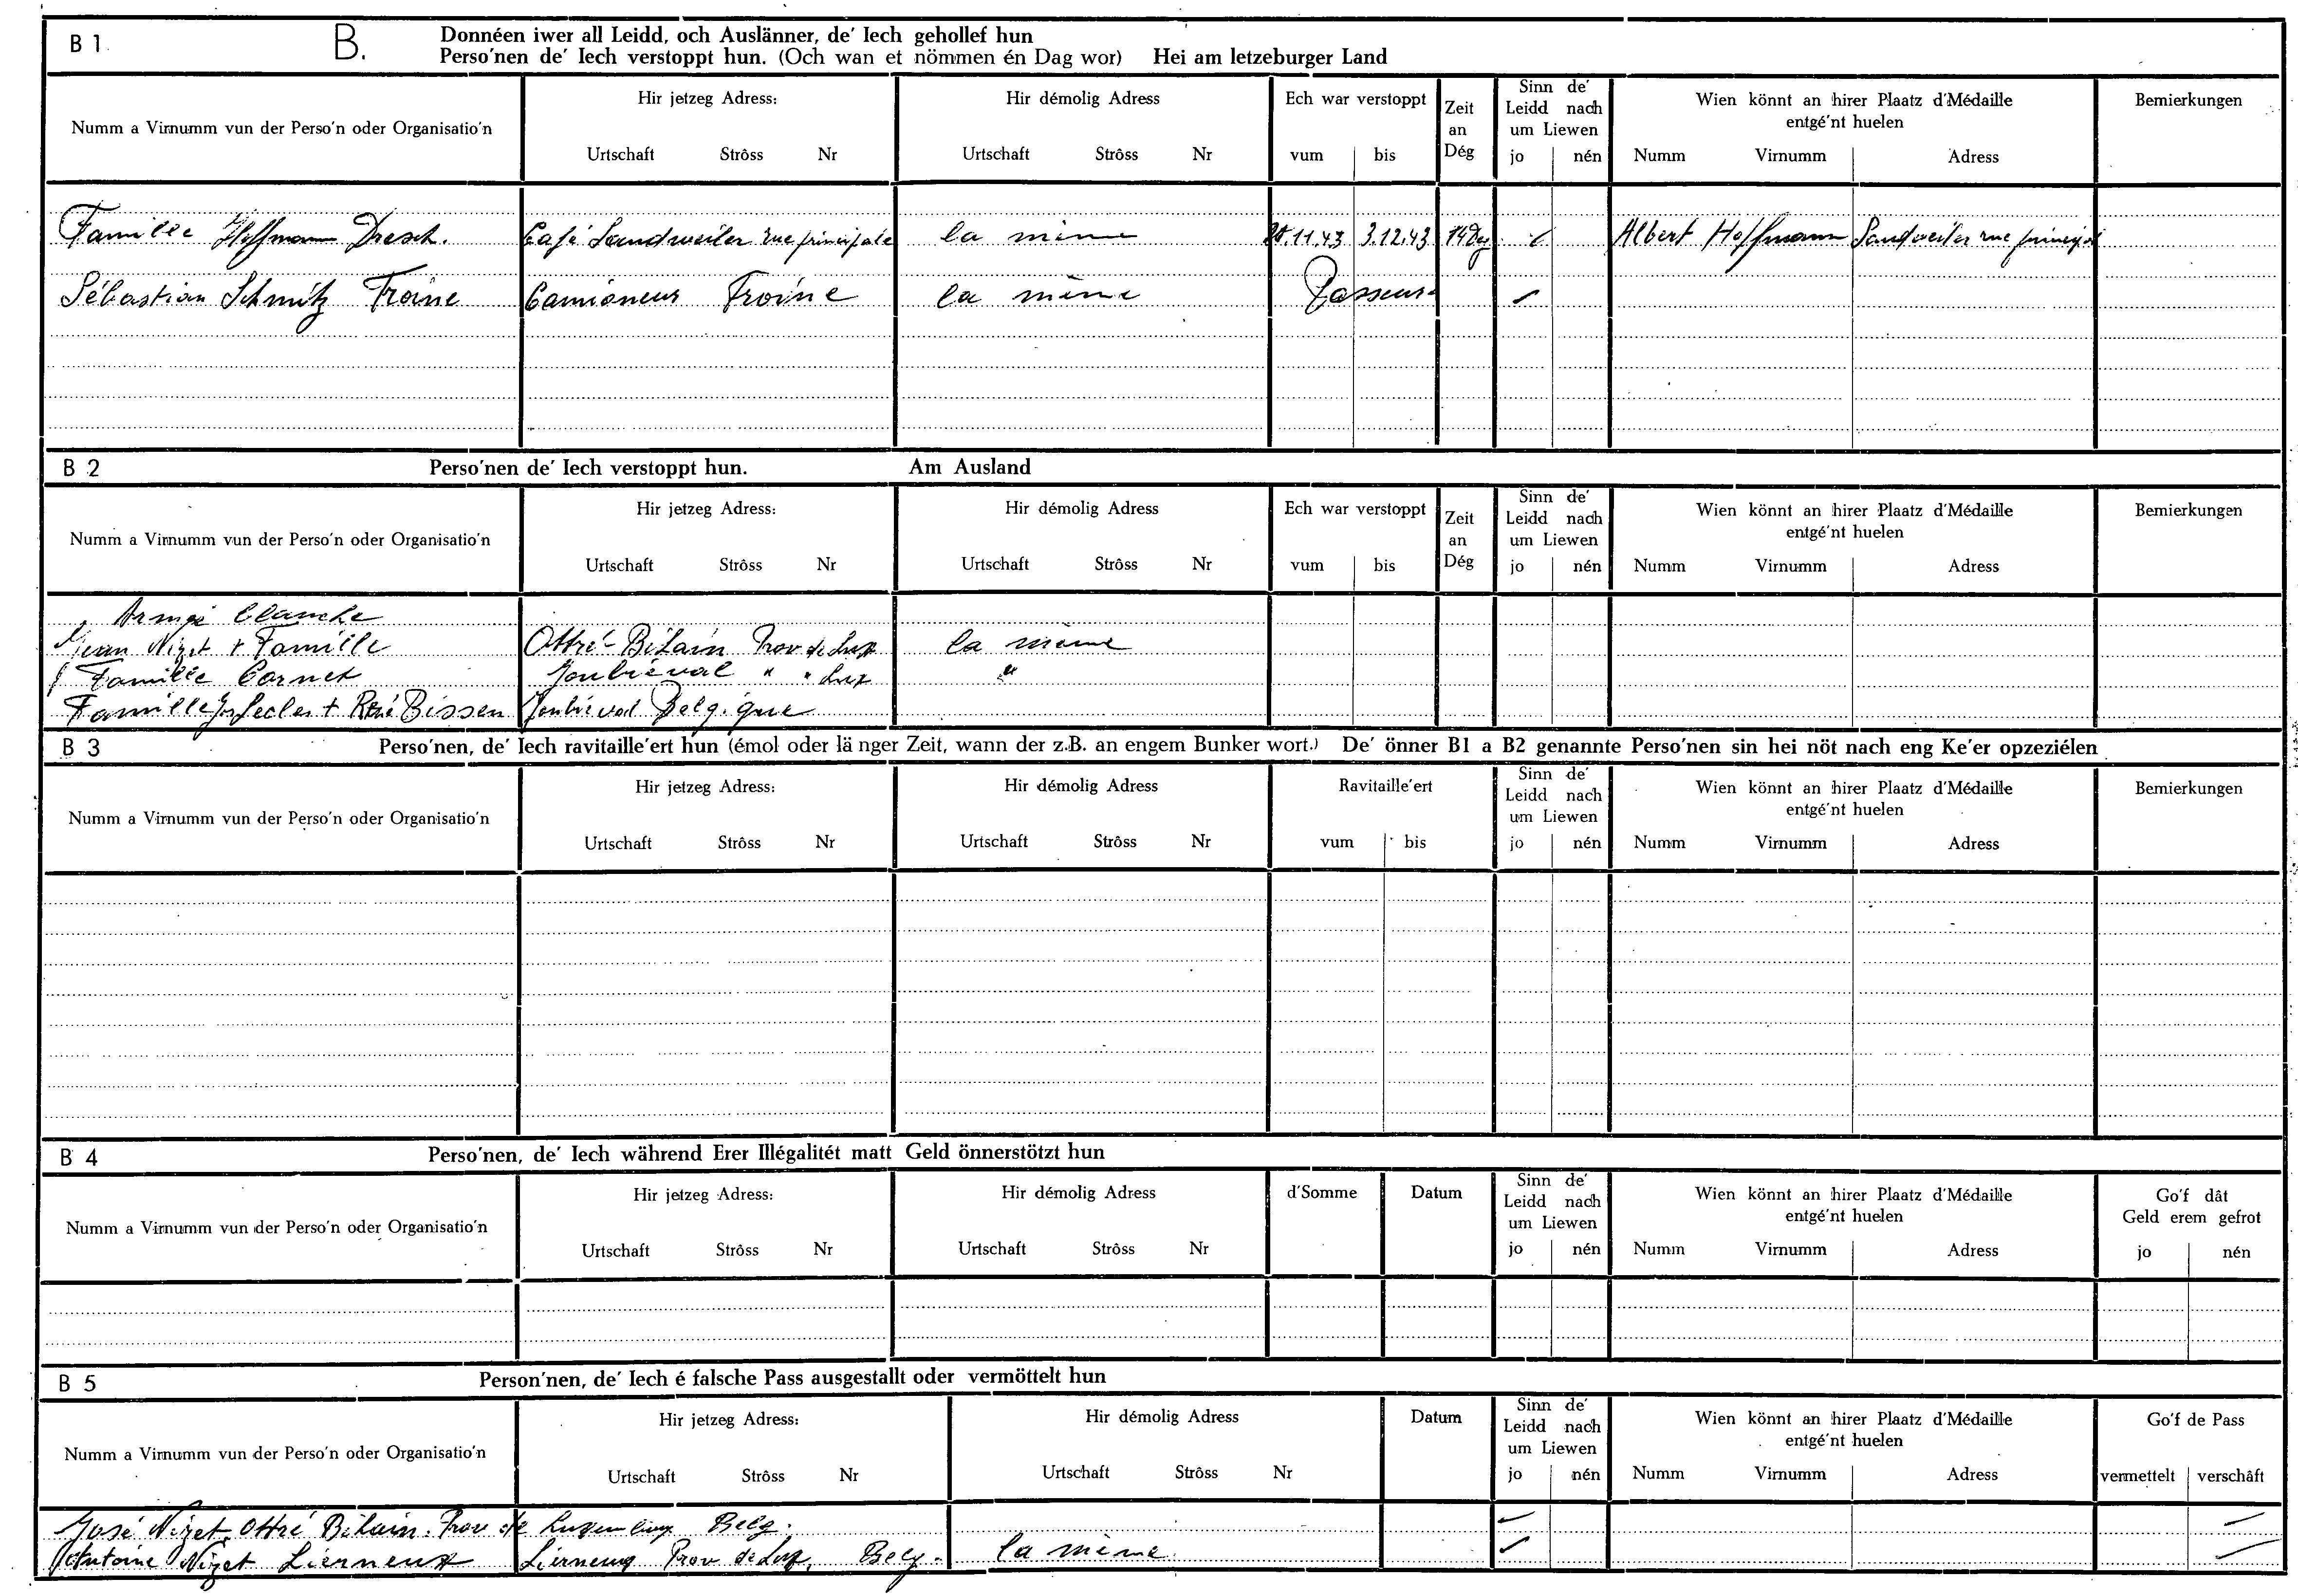 B 1 B. Donnéen iwer all Leidd, och Auslänner, de' Iech gehollef hun
Perso'nen de' Iech verstoppt hun. (Och wan et nömmen én Dag wor) Hei am letzeburger Land
Numm a Virnumm vun der Perso'n oder Organisatio'n
Hir jetzeg Adress:
Urtschaft Strôss Nr
Hir démolig Adress
Urtschaft Strôss Nr
Ech war verstoppt
vum bis
Zeit
an
Dég
Sinn de'
Leidd nach
um Liewen
jo nén
Wien könnt an hirer Plaatz d'Médaille
entgé'nt huelen
Numm Virnumm Adress
Bemierkungen
Famille Hoffmann Dresch. Café Sandweiler rue principale la même 20.11.43 3.12.43 14 Deg Albert Hoffmann Sandweiler rue principal
Sébastian Schmitz Troine Camioneur Troine la même Passeur
B 2 Perso'nen de' Iech verstoppt hun. Am Ausland
Numm a Virnumm vun der Perso'n oder Organisatio'n
Hir jetzeg Adress:
Urtschaft Strôss Nr
Hir démolig Adress
Urtschaft Strôss Nr
Ech war verstoppt
vum bis
Zeit
an
Dég
Sinn de'
Leidd nach
um Liewen
jo nén
Wien könnt an hirer Plaatz d'Médaille
entgé'nt huelen
Numm Virnumm Adress
Bemierkungen
Armée blanche
Jean Nizet + Famille Ottré-Bihain Prov de Lux la même
Famille Cornet Joubiéval " " Lux "
Famille Jos Lecler + René Bissen Joubiéval Belgique
B 3 Perso'nen, de' Iech ravitaille'ert hun (émol oder länger Zeit, wann der z.B. an engem Bunker wort.) De' önner B1 a B2 genannte Perso'nen sin hei nöt nach eng Ke'er opzeziélen
Numm a Virnumm vun der Perso'n oder Organisatio'n
Hir jetzeg Adress:
Urtschaft Strôss Nr
Hir démolig Adress
Urtschaft Strôss Nr
Ravitaille'ert
vum bis
Sinn de'
Leidd nach
um Liewen
jo nén
Wien könnt an hirer Plaatz d'Médaille
entgé'nt huelen
Numm Virnumm Adress
Bemierkungen
B 4 Perso'nen, de' Iech während Erer Illégalitét matt Geld önnerstötzt hun
Numm a Virnumm vun der Perso'n oder Organisatio'n
Hir jetzeg Adress:
Urtschaft Strôss Nr
Hir démolig Adress
Urtschaft Strôss Nr
d'Somme
Datum
Sinn de'
Leidd nach
um Liewen
jo nén
Wien könnt an hirer Plaatz d'Médaille
entgé'nt huelen
Numm Virnumm Adress
Go'f dât
Geld erem gefrot
jo nén
B 5 Person'nen, de' Iech é falsche Pass ausgestallt oder vermöttelt hun
Numm a Virnumm vun der Perso'n oder Organisatio'n
Hir jetzeg Adress:
Urtschaft Strôss Nr
Hir démolig Adress
Urtschaft Strôss Nr
Datum
Sinn de'
Leidd nach
um Liewen
jo nén
Wien könnt an hirer Plaatz d'Médaille
entgé'nt huelen
Numm Virnumm Adress
Go'f de Pass
vermettelt verschâft
José Nizet Ottré Bihain. Prov de Luxemburg Belg.
Antoine Nizet Lierneux Lierneux Prov de Lux, Belg. la même